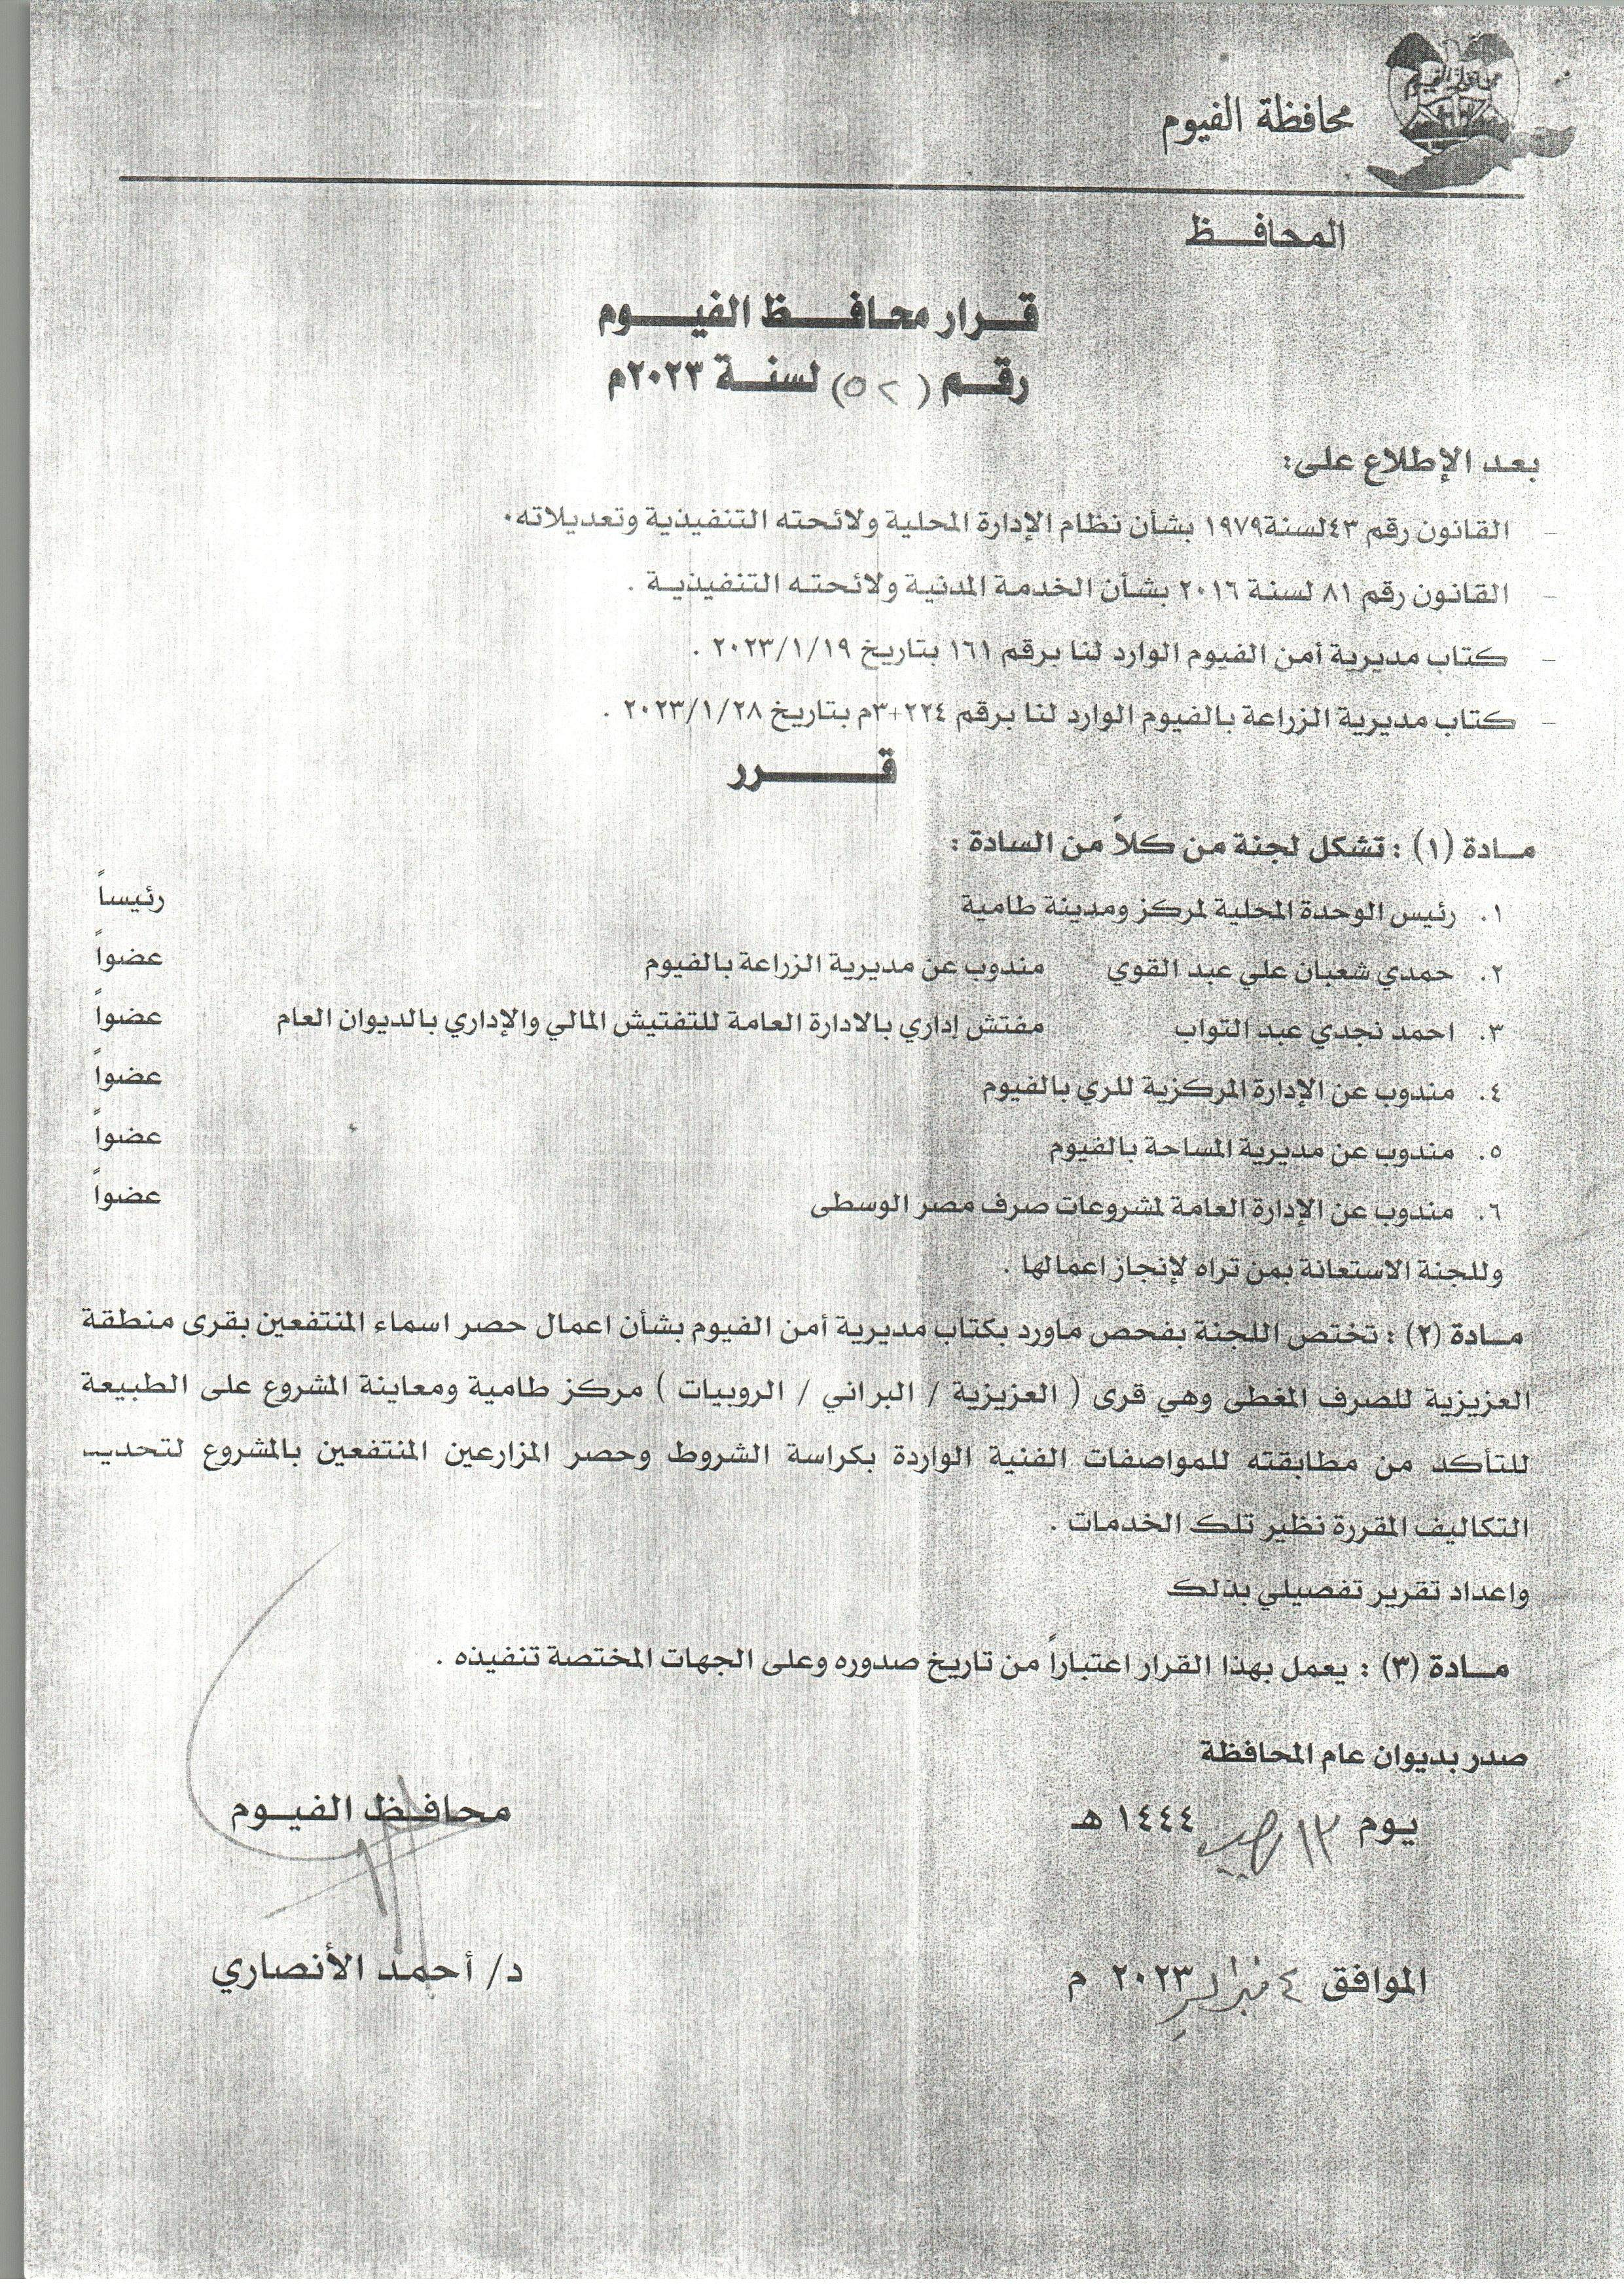 محافظة الفيوم
محافظة الفيوم
المحافـــظ
قـرار محافـــظ الفيـــوم
رقـم (٥٢) لسنـة ٢٠٢٣م
بعد الإطلاع على:
- القانون رقم ٤٣لسنة١٩٧٩ بشأن نظام الإدارة المحلية ولائحته التنفيذية وتعديلاته.
- القانون رقم ٨١ لسنة ٢٠١٦ بشأن الخدمة المدنية ولائحته التنفيذيـة .
- كتاب مديرية أمن الفيوم الوارد لنا برقم ١٦١ بتاريخ ٢٠٢٣/١/١٩ .
- كتاب مديرية الزراعة بالفيوم الوارد لنا برقم ٢٢٤+٣م بتاريخ ٢٠٢٣/١/٢٨ .
قـــــرر
مـادة (١) : تشكل لجنة من كلاً من السادة :
١. رئيس الوحدة المحلية لمركز ومدينة طامية رئيساً
٢. حمدي شعبان علي عبد القوي مندوب عن مديرية الزراعة بالفيوم عضواً
٣. احمد نجدي عبد التواب مفتش إداري بالادارة العامة للتفتيش المالي والإداري بالديوان العام عضواً
٤. مندوب عن الإدارة المركزية للري بالفيوم عضواً
٥. مندوب عن مديرية المساحة بالفيوم عضواً
٦. مندوب عن الإدارة العامة لمشروعات صرف مصر الوسطى عضواً
وللجنة الاستعانة بمن تراه لإنجاز اعمالها .
مـادة (٢) : تختص اللجنة بفحص ماورد بكتاب مديرية أمن الفيوم بشأن اعمال حصر اسماء المنتفعين بقرى منطقة
العزيزية للصرف المغطى وهي قرى ( العزيزية / البراني / الروبيات ) مركز طامية ومعاينة المشروع على الطبيعة
للتأكد من مطابقته للمواصفات الفنية الواردة بكراسة الشروط وحصر المزارعين المنتفعين بالمشروع لتحديد
التكاليف المقررة نظير تلك الخدمات .
واعداد تقرير تفصيلي بذلك
مـادة (٣) : يعمل بهذا القرار اعتباراً من تاريخ صدوره وعلى الجهات المختصة تنفيذه .
صدر بديوان عام المحافظة
يوم ١٣ رجب ١٤٤٤ هـ
محافـظ الفيـوم
الموافق ٤ فبراير ٢٠٢٣ م
د/ أحمد الأنصاري